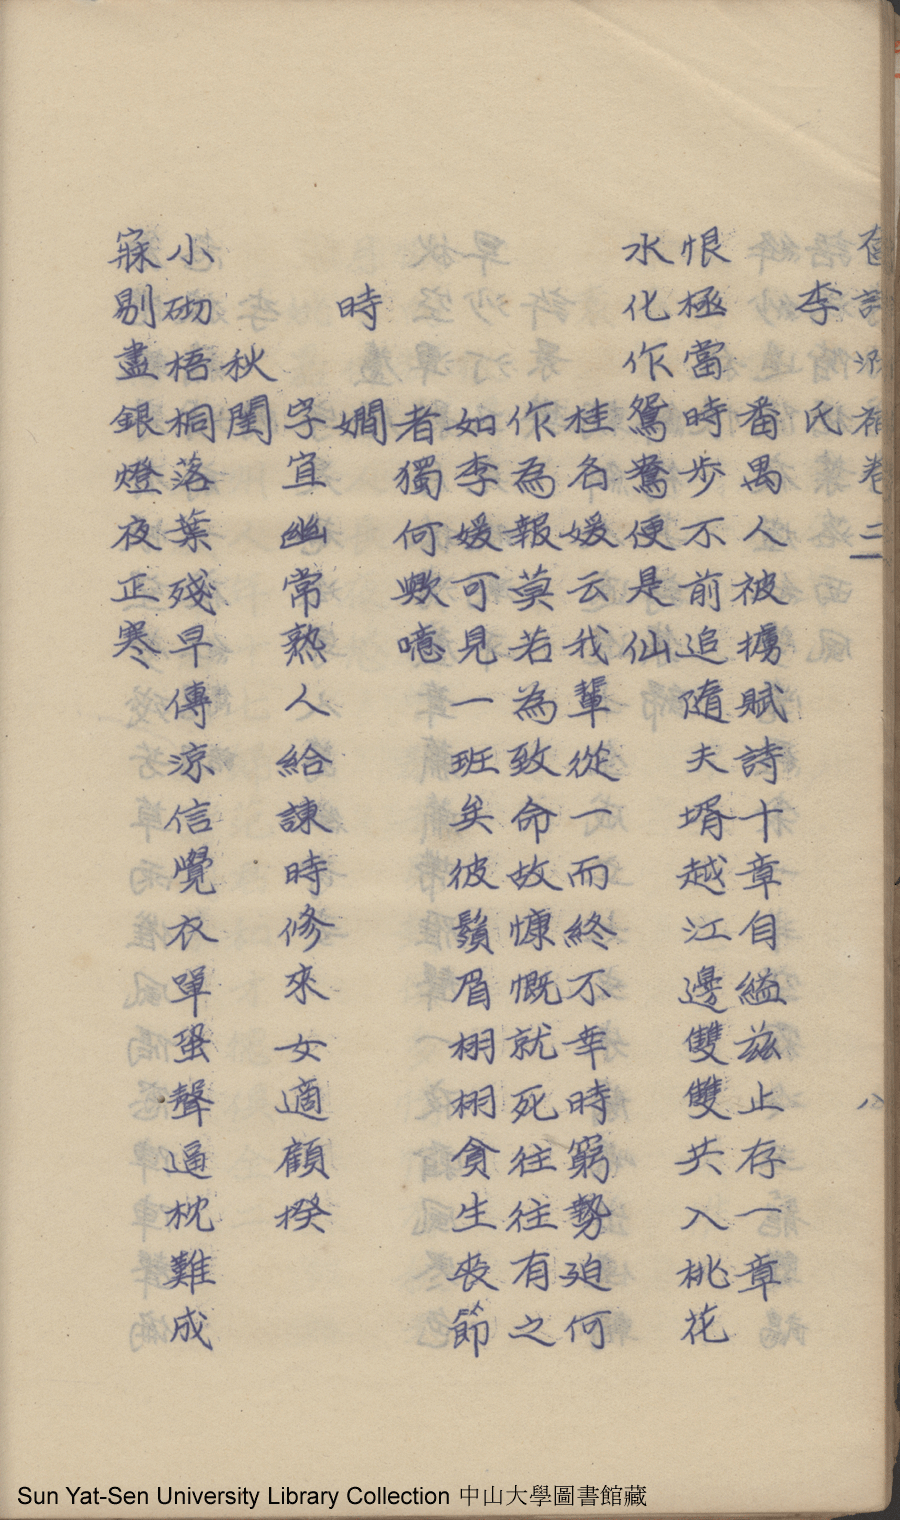 舊詩汎補卷二 八
李氏
番禺人被擄賦詩十章自縊茲止存一章
恨極當時步不前追隨夫壻越江邊雙雙共入桃花
水化作鴛鴦便是仙
桂名媛云我輩從一而終不幸時窮勢迫何
作為報莫若為致命故慷慨就死往往有之
如李媛可見一班矣彼鬚眉栩栩貪生喪節
者獨何歟噫
時嫺
字宜幽常熟人給諫時修來女適顧揆
秋閨
小砌梧桐落葉殘早傳涼信覺衣單蛩聲逼枕難成
寐剔盡銀燈夜正寒
Sun Yat-Sen University Library Collection 中山大學圖書館藏